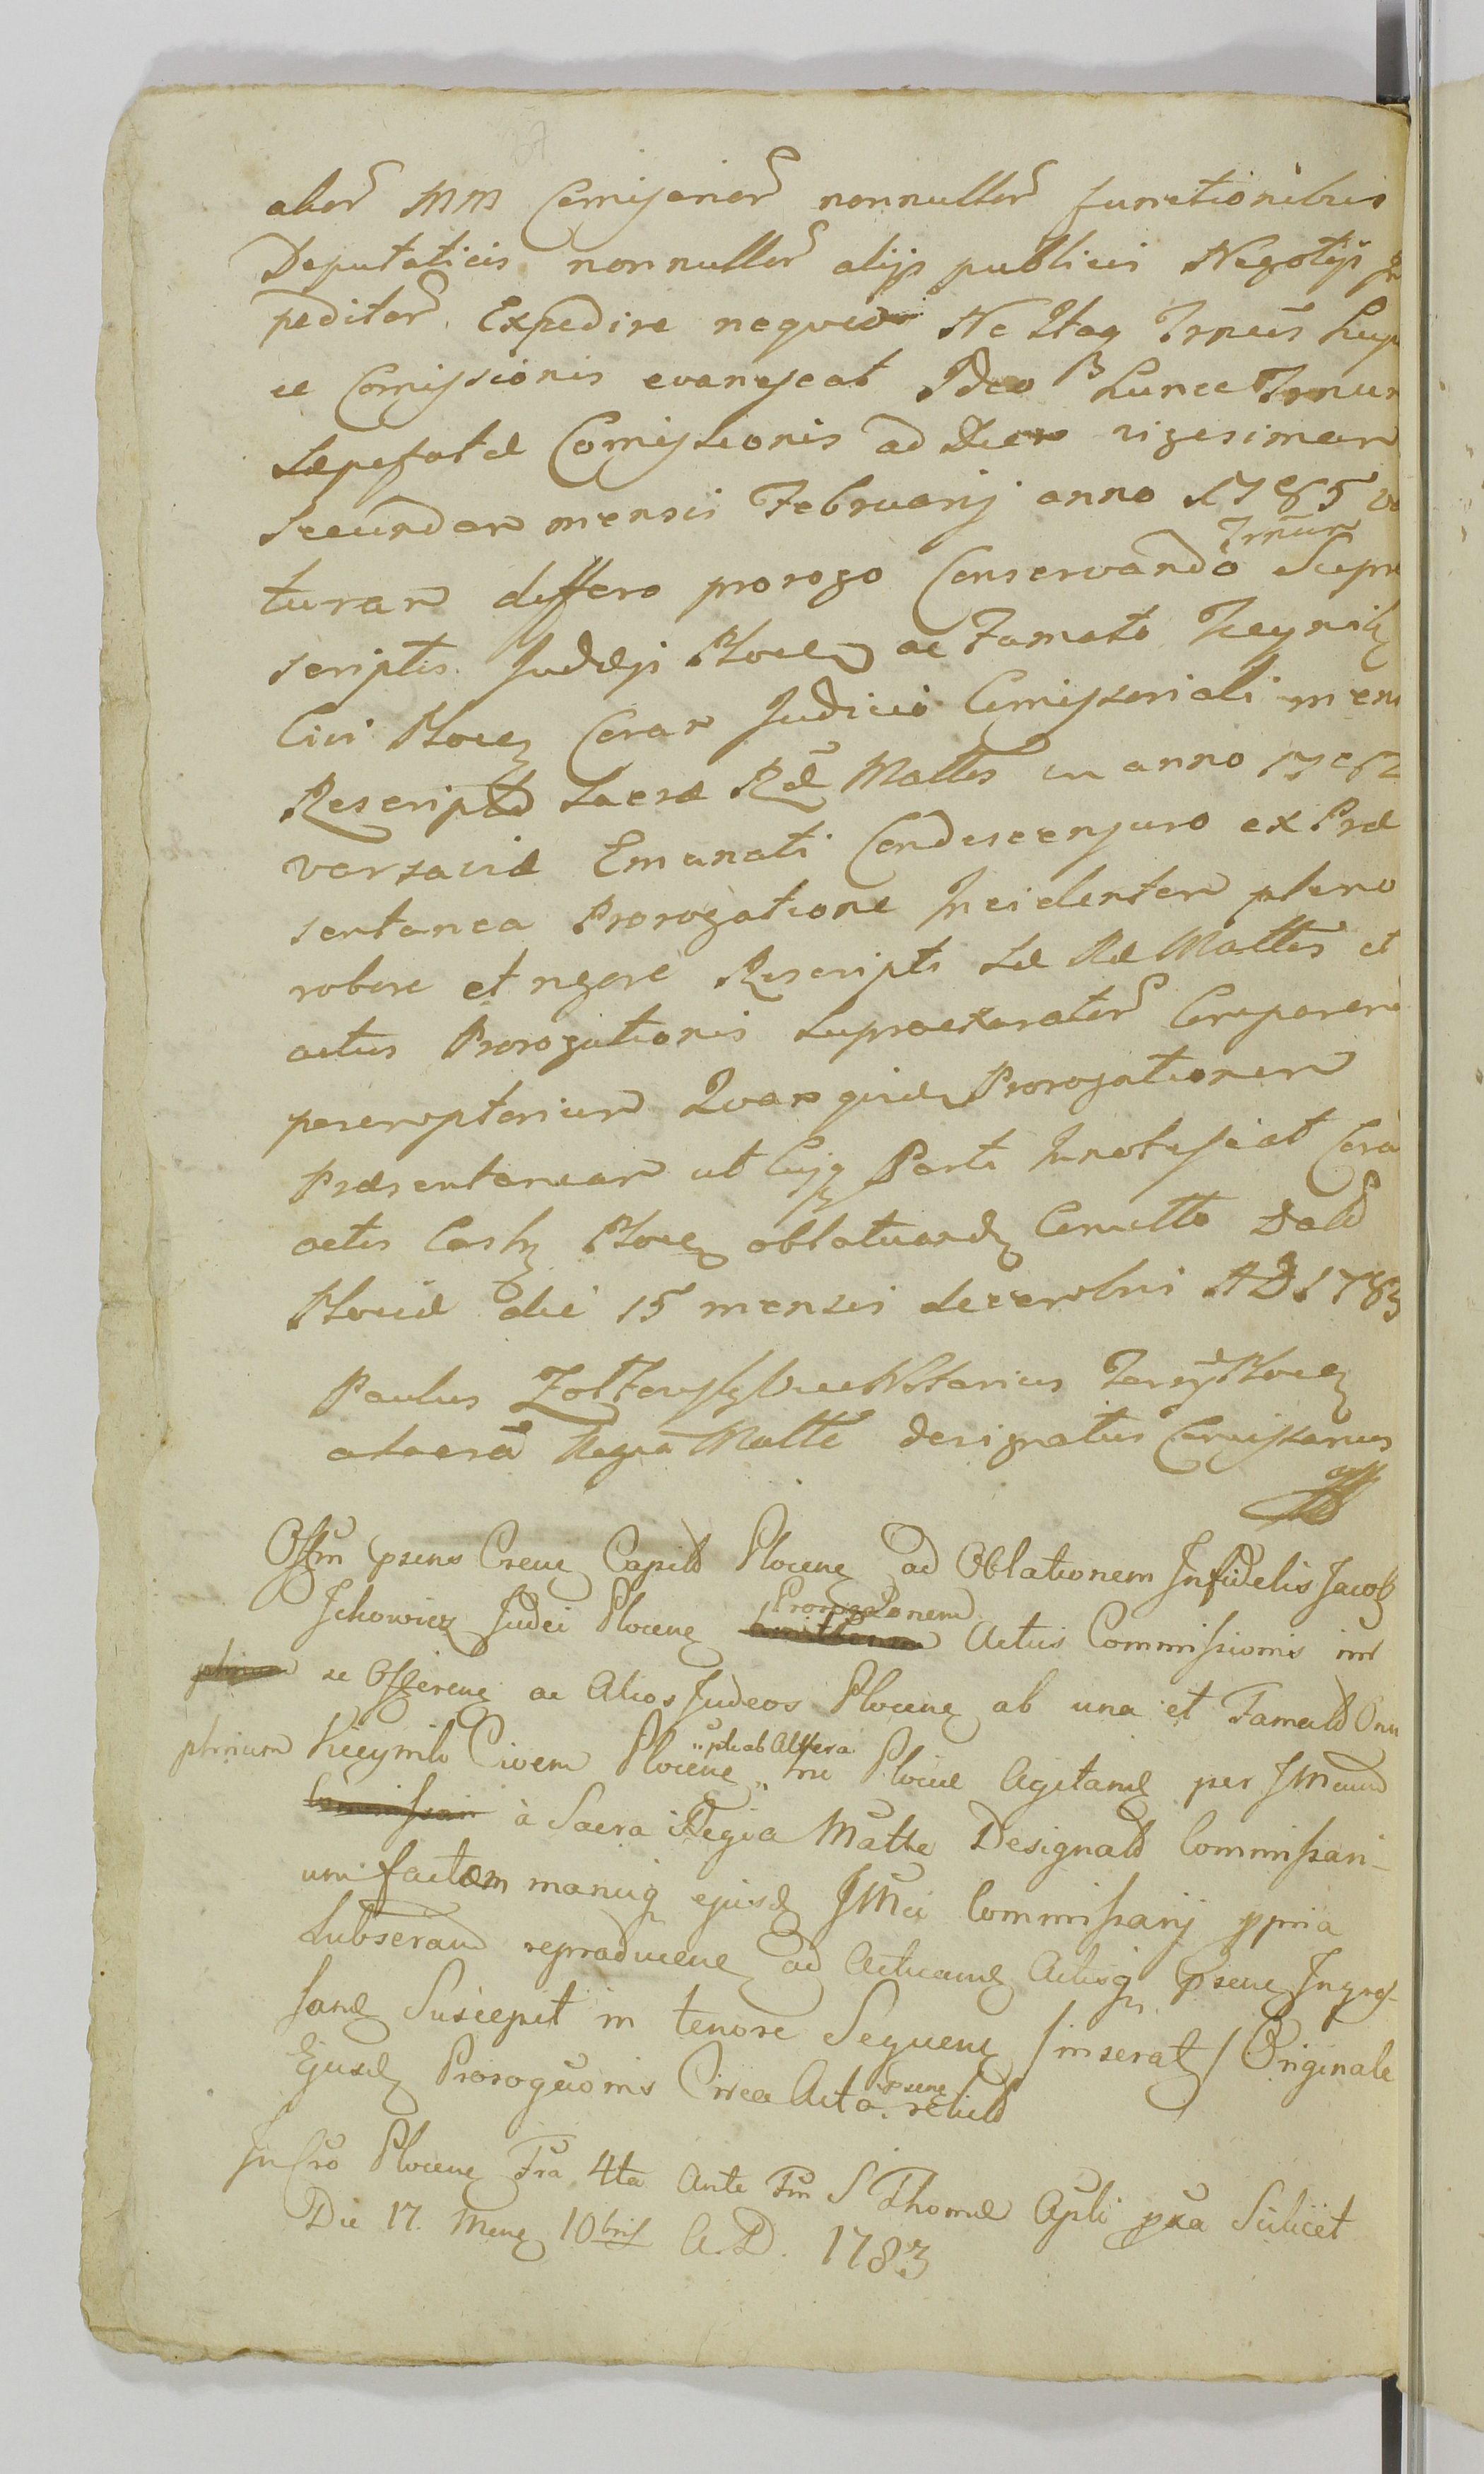 alior MM Comissarior nonnullor functionibus
Deputaticis nonnullor alijs publicis Negotijs
peditor Expedire nequeo Ne Itaq Trnus huj
ce Comissionis evanescat Ideo hunce Trnum
Sæpefatæ Comissionis ad Diem vigesimam
Secundam mensis Februarij anno 1785
Trnum
turam differo prorogo Conservando Supra
scriptis Judæis Plocen ac Famato Kieynik
Civi Plocen Coram Judicio Comissoriali
Rescripto Sacræ Ræ Mattis in anno
Varsaviæ Emanati Condescensuro ex Præ
sentanea Prorogatione Incidentem pleno
robore et vigore Rescripti Sæ Ræ Mattis et
actus Prorogationis Supraexarator Comparen
peremptorium Quam quid Prorogationem
Præsentaneam ut Cuiq Parti Innotescat Cora
actis Cast Plocen oblatuand Comitto Datt
Plociæ die 15 mensis decembris AD 1783
Paulus Vice Notarius Plocen
a Sacra Regia Matte designatus Comissarius
Offm psens Crene Capitt Plocene ad Oblationem Infidelis Jacob
Ickowicz Judei Plocene Prorogaonem Actus Commissionis int
se Offerene ac Alios Judeos Plocene ab una et Famatt Onu
phrium Kieynik Civem Plocene pte ab Altera hic Plociæ Agitand per JMcum
à Sacra Regia Matte Designatt Commissari-
um factam manuq ejusd JMci Commissarij ppria
Subscrand reproducene ad Acticand Actisq psene Ingros-
sand Suscepit in tenore Sequene /inserat/ Originale
Ejusd Prorogaonis Circa Acta psene relictt
In Cro Plocene Fra 4ta Ante Fm S Thomæ Apli pxa Scilicet
Die 17. Mens 10bris A.D. 1783